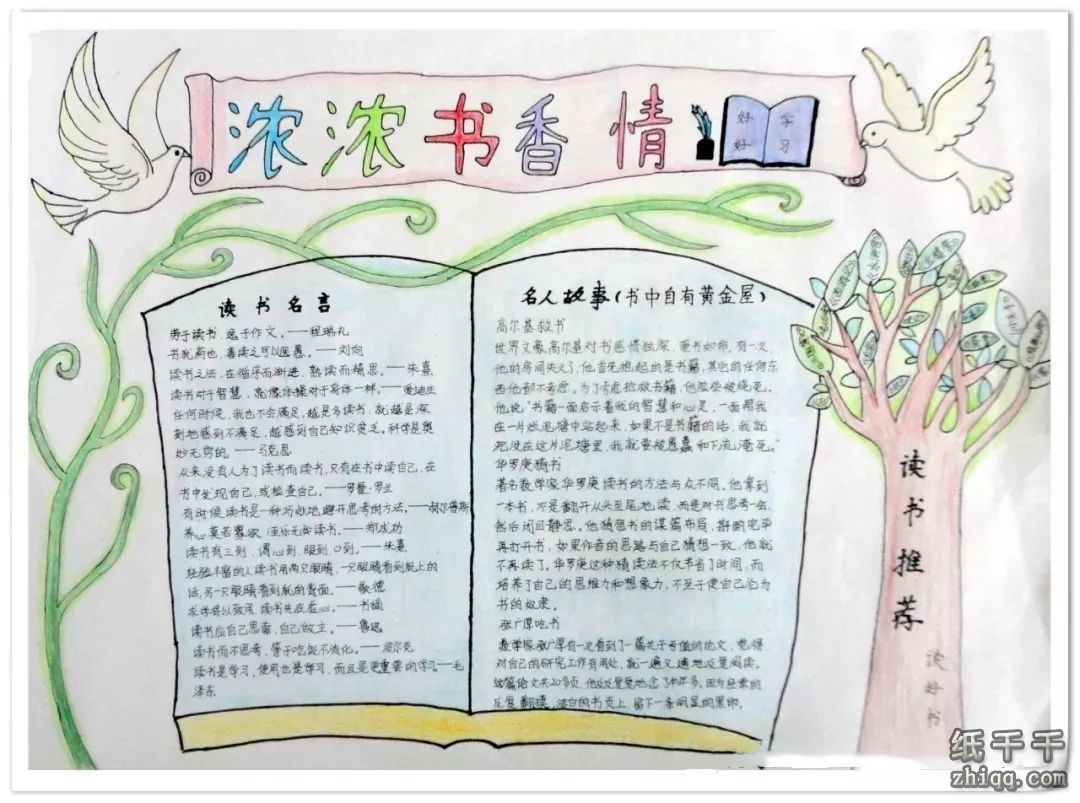 浓浓书香情
好 学
好 习
读书名言
勇于读书，逸于作文。——程瑞礼
书犹药也，善读之可以医愚。——刘向
读书之法，在循序而渐进，熟读而精思。——朱熹
读书对于智慧，就像体操对于身体一样。——爱迪生
任何时候，我也不会满足，越是多读书，就越是深
刻地感到不满足，越感到自己知识贫乏。科学是奥
妙无穷的。——马克思
从来没有人为了读书而读书，只有在书中读自己，在
书中发现自己，或检查自己。——罗曼·罗兰
有时候读书是一种巧妙地避开思考的方法。——赫尔普斯
养心莫若寡欲，至乐无如读书。——郑成功
读书有三到，谓心到，眼到，口到。——朱熹
经验丰富的人读书用两只眼睛，一只眼睛看到纸上的
话，另一只眼睛看到纸的背面。——歌德
求学将以致用，读书先在虚心。——
读书应自己思索，自己做主。——鲁迅
读书而不思考，等于吃饭不消化。——波尔克
读书是学习，使用也是学习，而且是更重要的学习——毛
泽东
名人故事（书中自有黄金屋）
高尔基救书
世界文豪高尔基对书感情独深，爱书如命。有一次，
他的房间失火了，他首先抱起的是书籍，其它的任何东
西他都不考虑。为了抢救书籍，他险些被烧死。
他说：“书籍一面启示着我的智慧和心灵，一面帮我
在一片烂泥塘中站起来，如果不是书籍的话，我就
沉没在这片泥塘里，我就要被愚蠢和下流淹死。”
华罗庚猜书
著名数学家华罗庚读书的方法与众不同。他拿到
一本书，不是翻开从头至尾地读，而是对书思考一会，
然后闭目静思。他猜想书的谋篇布局，斟酌完毕
再打开书，如果作者的思路与自己猜想一致，他就
不再读了。华罗庚这种猜读法不仅节省了时间，而
培养了自己的思维力和想象力，不至于使自己沦为
书的奴隶。
张广厚吃书
数学家张广厚有一次看到了一篇关于亏值的论文，觉得
对自己的研究工作有用处，就一遍又一遍地反复阅读。
这篇论文共20多页，他反反复复地念了半年多。因为经常的
反复翻摸，洁白的书页上，留下一条明显的黑印。
读书推荐
读好书
纸千千
zhiqq.com